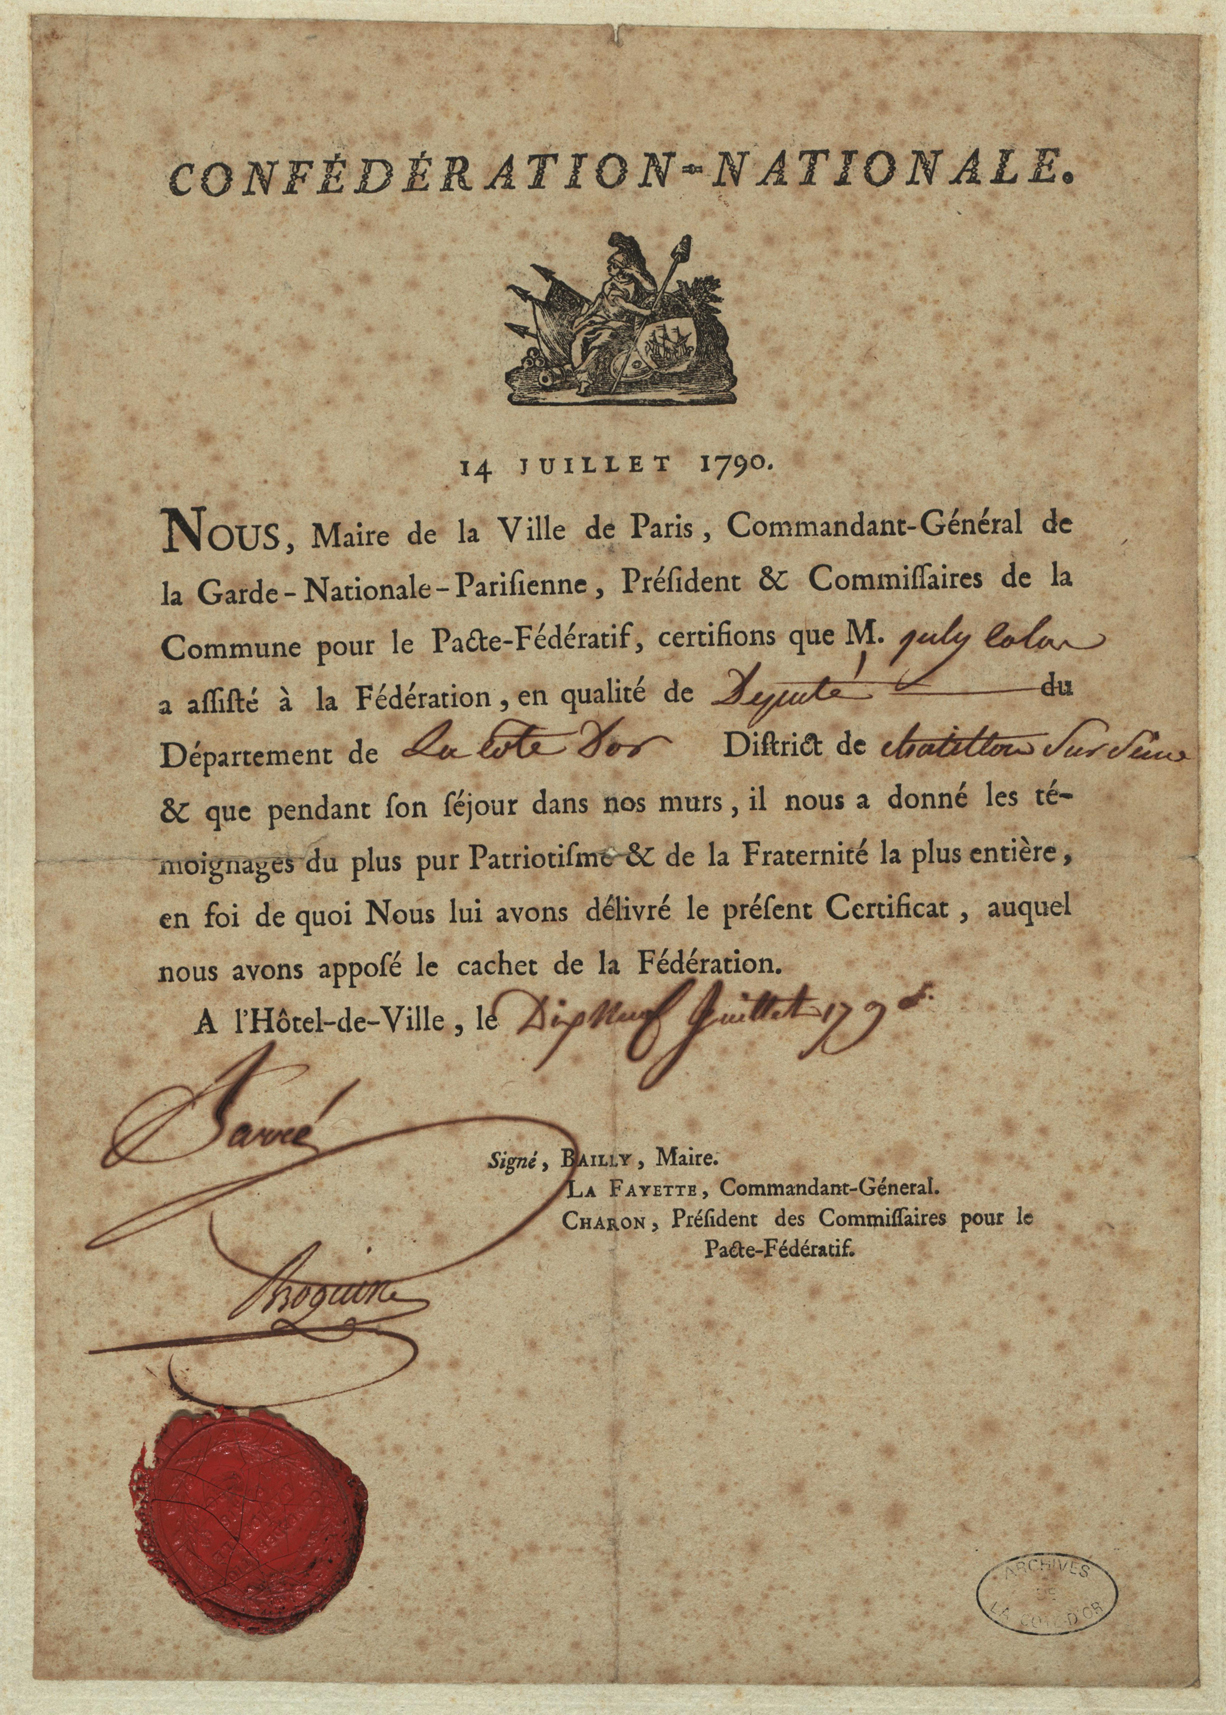 CONFÉDÉRATION-NATIONALE.
14 JUILLET 1790.
NOUS, Maire de la Ville de Paris, Commandant-Général de
la Garde-Nationale-Pariſienne, Préſident & Commiſſaires de la
Commune pour le Pacte-Fédératif, certifions que M. july Colon
a aſſiſté à la Fédération, en qualité de Deputé du
Département de La Cote Dor Diſtrict de chatillon Sur Seine
& que pendant ſon ſéjour dans nos murs, il nous a donné les té-
moignages du plus pur Patriotiſme & de la Fraternité la plus entière,
en foi de quoi Nous lui avons délivré le préſent Certificat, auquel
nous avons appoſé le cachet de la Fédération.
A l'Hôtel-de-Ville, le Dix Neuf Juillet 1790.
Signé, BAILLY, Maire.
LA FAYETTE, Commandant-Géneral.
CHARON, Préſident des Commiſſaires pour le
Pacte-Fédératif.
ARCHIVES
DE
LA COTE-D'OR